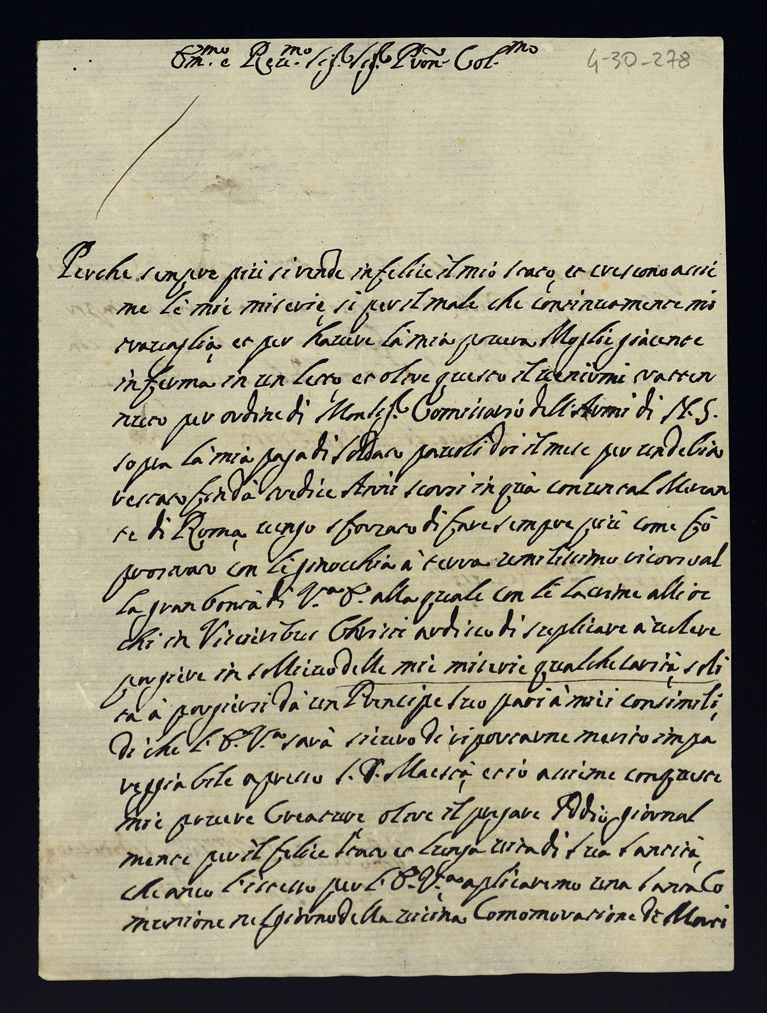 Em.mo e Reu.mo Sig.r Sig.r Pron Col.mo
4-30-278
Perche sempre più si rende infelice il mio stato, et crescono assie
me le mie miserie, si per il male che continuamente mi
trauaglia, et per hauere la mia pouera Moglie giacente
inferma in un letto et oltre questo il uenirmi tratten
nuto per ordine di Monsig.r Comissario dell'Armi di N. S.
sopra la mia paga di soldato paoli doi il mese per un debito
restato fin da tredici Anni scorsi in quà con un tal Mercan
te di Roma, uengo sforzato di fare sempre più come fò
prostrato con le ginocchia à terra umilissimo ricorso al
la gran bontà di V.ra E. alla quale con le lacrime alli oc
chi in Visceribus Christi ardisco di suplicare à uolere
porgiere in sollieuo delle mie miserie qualche carità, soli
ta à porgiersi da un Principe suo pari à miei consimili,
di che l'E. V.ra sarà sicuro di riportarne merito impa
reggiabile apresso S. D. Maestà, et io assieme con queste
mie pouere Creature oltre il pregare Iddio giornal
mente per il felice stato et lunga uita di Sua Santità,
che anco l'istesso per l'E. V.ra aplicaremo una santa Co
munione nel giorno della uicina Comomorazione de Morti